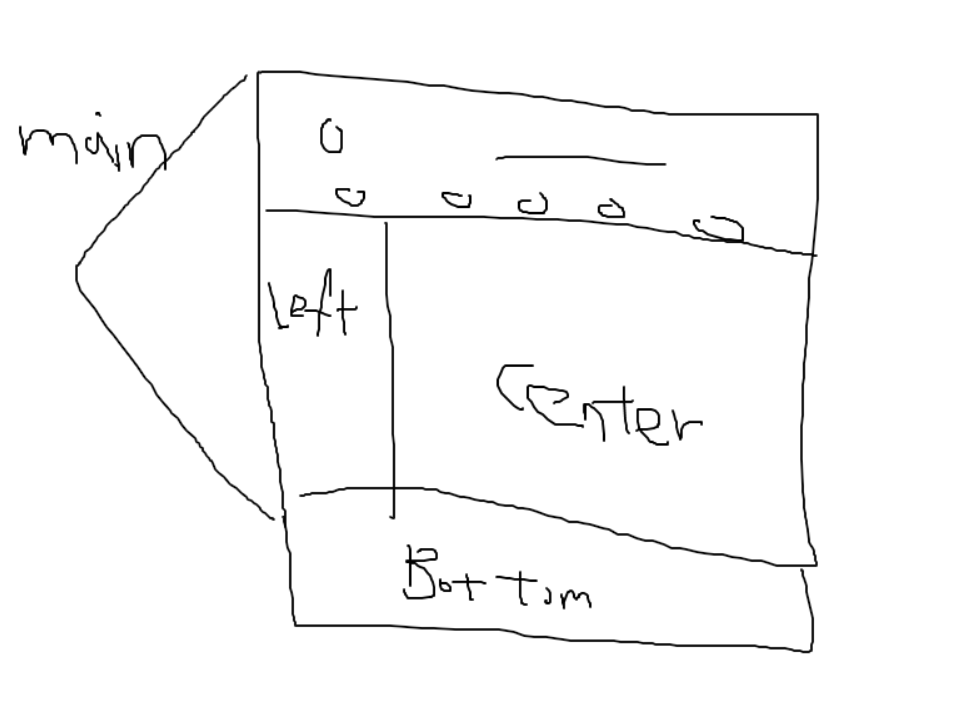 main
Left
Center
Bottom